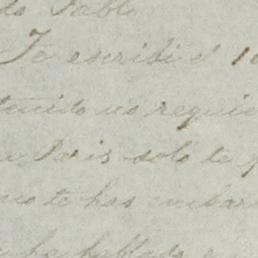 Pablo
Te escribí el 1
tenido no requie
Paris solo te
no te has embar
ha hablado